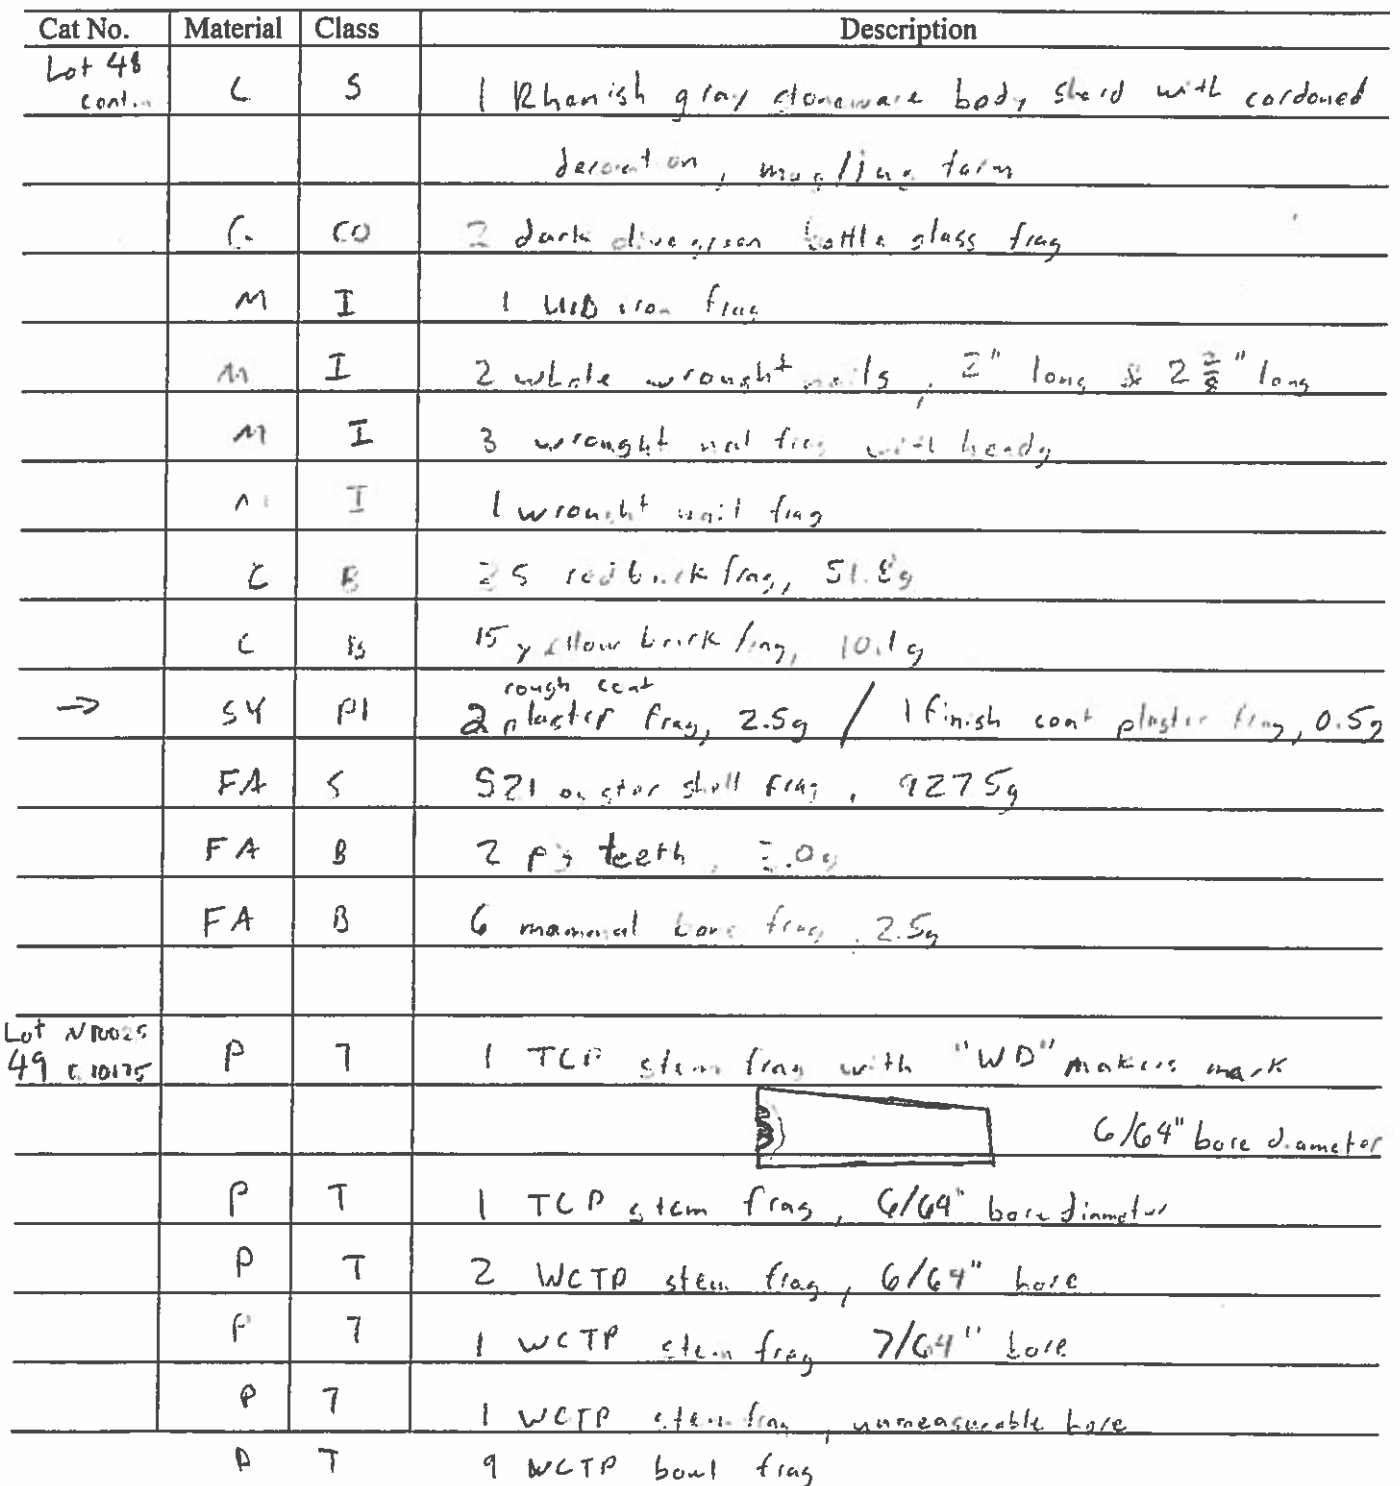 Cat No. Material Class Description
Lot 48 cont. C S 1 Rhenish gray stoneware body sherd with cordoned
decoration, mug/jug form
G CO 2 dark olive green bottle glass frag
M I 1 UID iron frag
M I 2 whole wrought nails, 2" long & 2 "long
M I 3 wrought nail frag with heads
M I 1 wrought nail frag
C B 25 red brick frag, 51.8g
C B 15 yellow brick frag, 10.1g
→ SY Pl 2 rough coat plaster frag, 2.5g / 1 finish coat plaster frag, 0.5g
FA S 521 oyster shell frag, 927.5g
FA B 2 pig teeth, 2.0g
FA B 6 mammal bone frag, 2.5g
Lot 49 N10025 E10175 P T 1 TCP stem frag with "WD" makers mark
6/64" bore diameter
P T 1 TCP stem frag, 6/64" bore diameter
P T 2 WCTP stem frag, 6/64" bore
P T 1 WCTP stem frag 7/64" bore
P T 1 WCTP stem frag, unmeasurable bore
P T 9 WCTP bowl frag